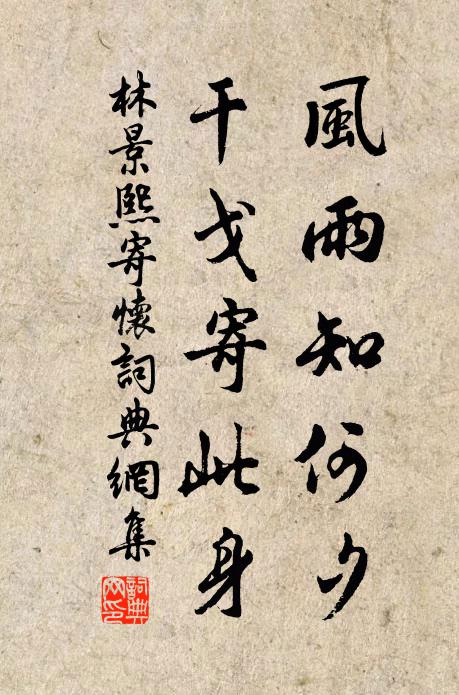 風雨知何夕
干戈寄此身
林景熙寄懷詞典網集
詞典
网印